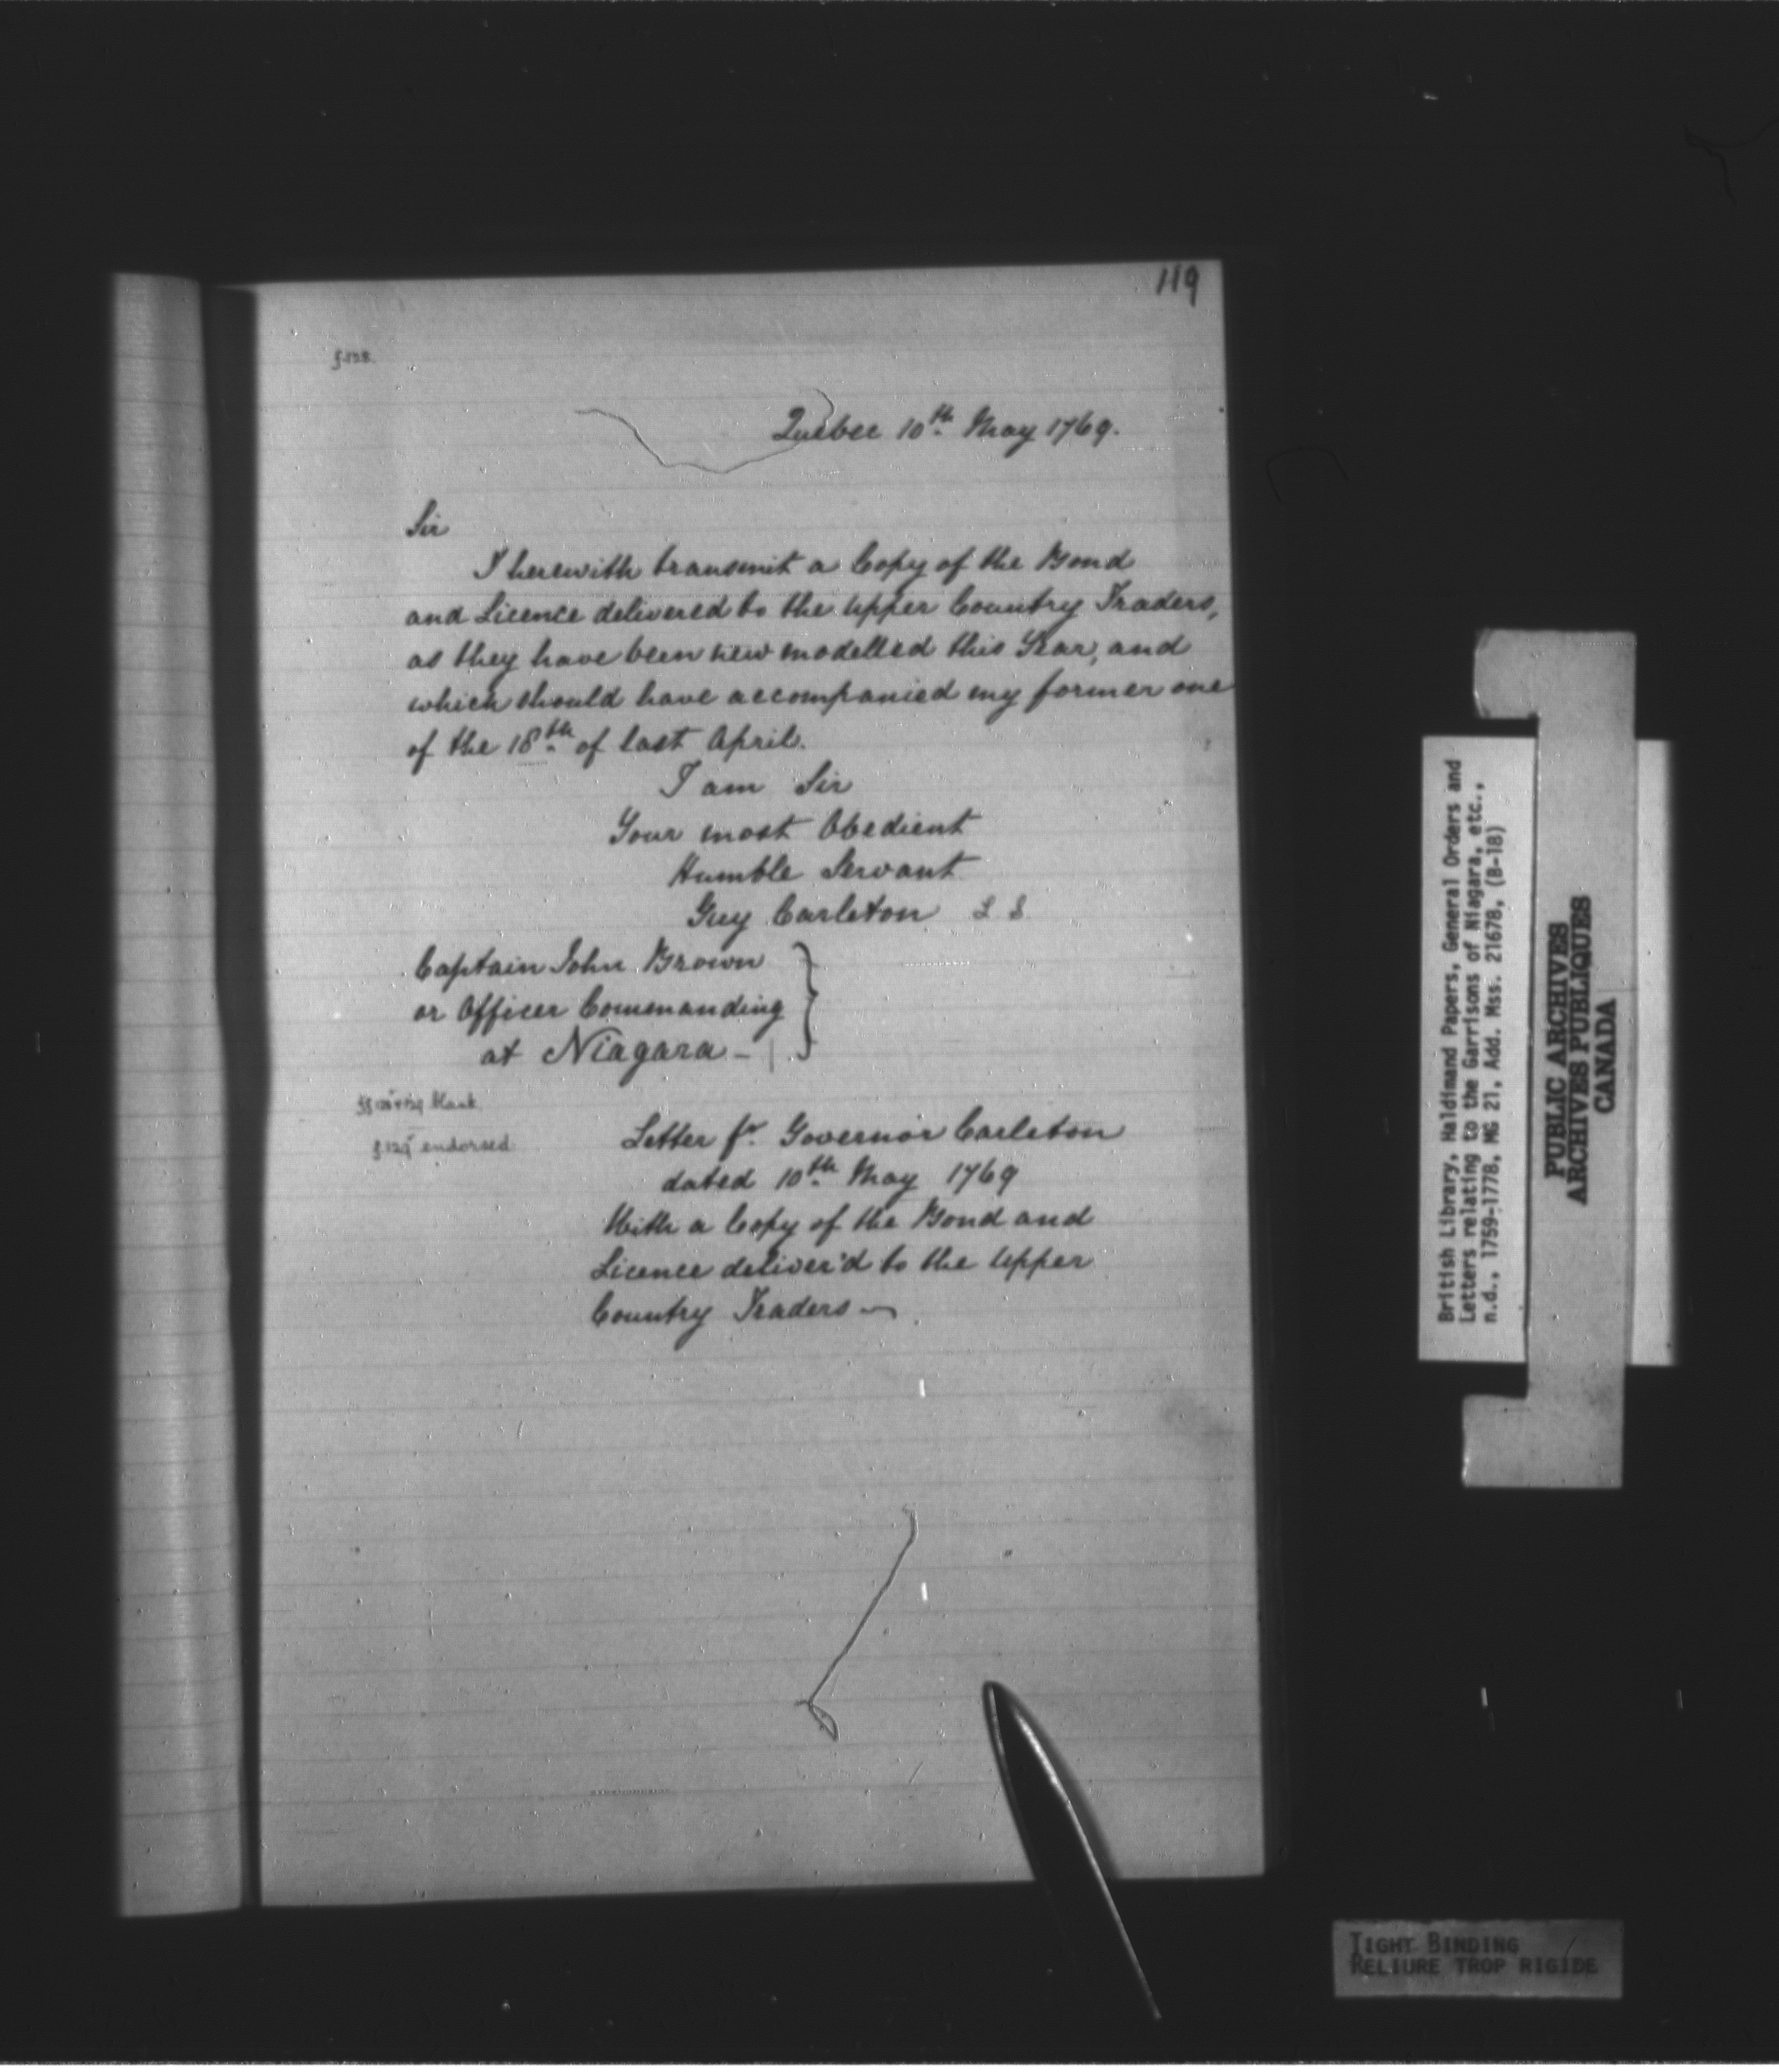 119
f.128.
Quebec 10th May 1769.
Sir
I herewith transmit a Copy of the Bond
and Licence delivered to the Upper Country Traders,
as they have been new modelled this Year, and
which should have accompanied my former one
of the 18th of last April.
I am Sir
Your most Obedient
Humble Servant
Guy Carleton L S
Captain John Brown
or Officer Commanding
at Niagara —
blank
endorsed
Letter fr. Governor Carleton
dated 10th May 1769
With a Copy of the Bond and
Licence deliver'd to the Upper
Country Traders —
British Library, Haldimand Papers, General Orders and
Letters relating to the Garrisons of Niagara, etc.,
n.d., 1759-1778, MG 21, Add. Mss. 21678, (B-18)
PUBLIC ARCHIVES
ARCHIVES PUBLIQUES
CANADA
TIGHT BINDING
RELIURE TROP RIGIDE